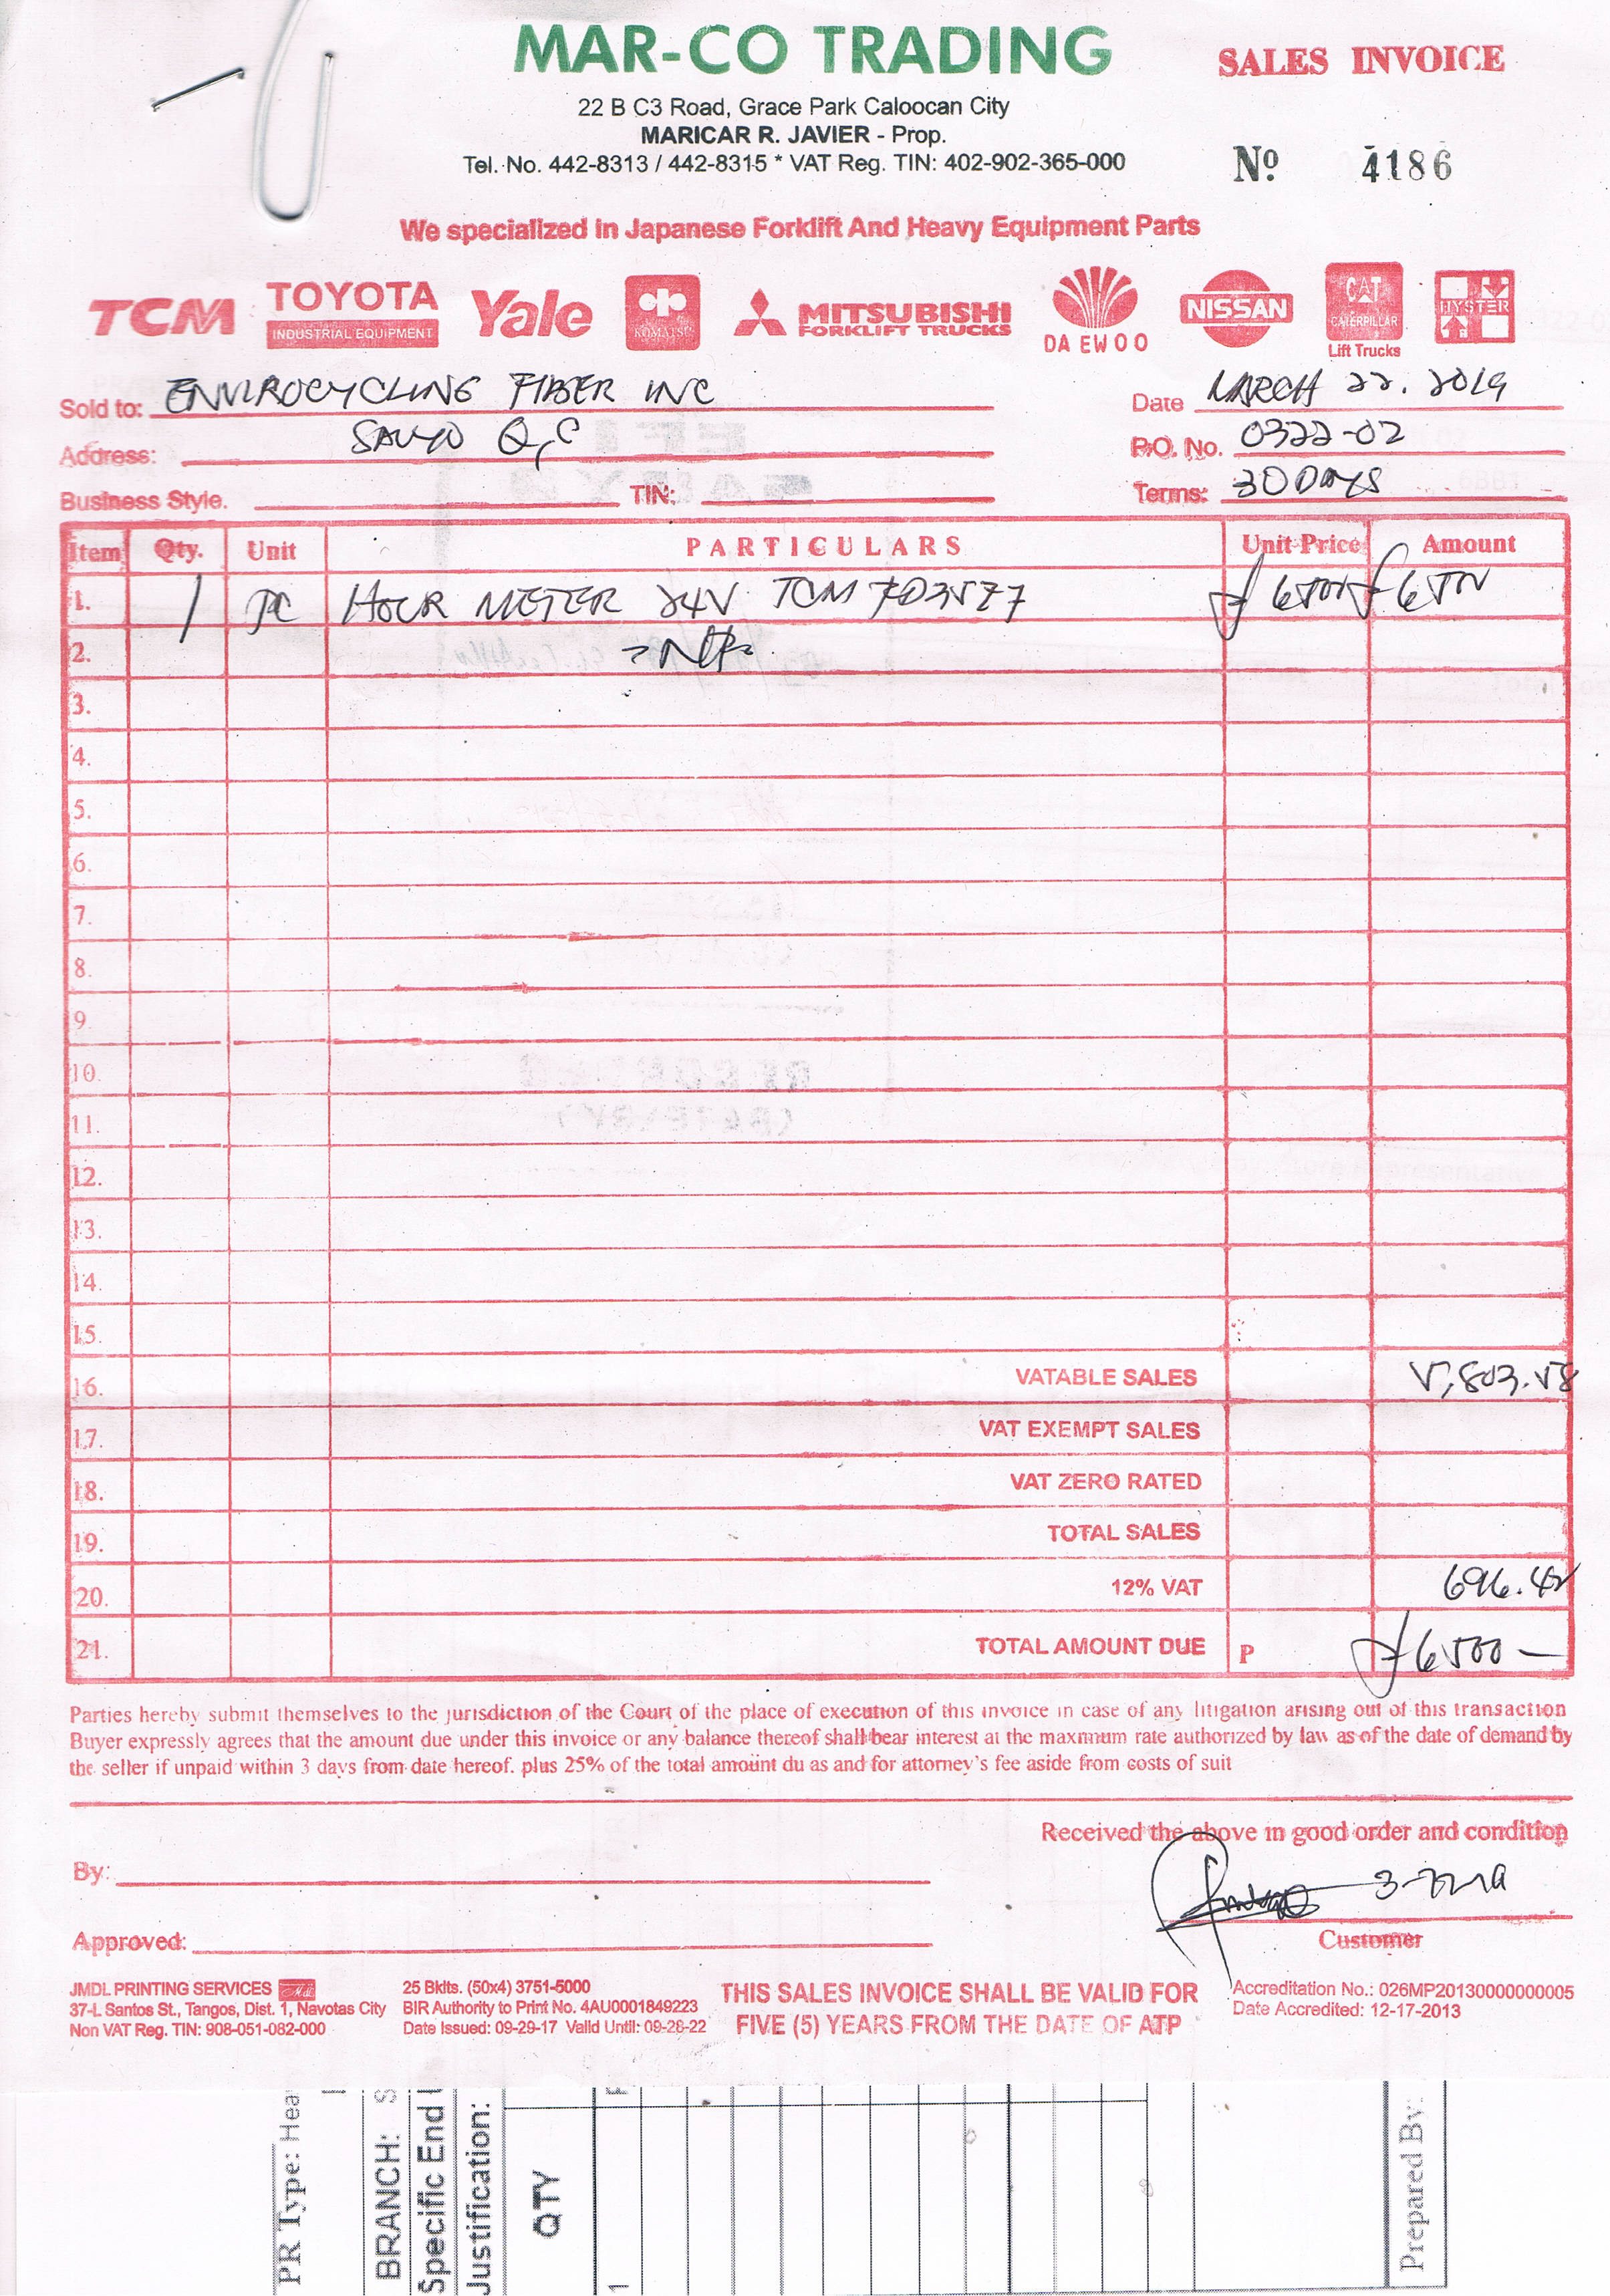 MAR-CO TRADING
SALES INVOICE
22 B C3 Road, Grace Park Caloocan City
MARICAR R. JAVIER - Prop.
Tel. No. 442-8313 / 442-8315 * VAT Reg. TIN: 402-902-365-000
Nº 4186
We specialized in Japanese Forklift And Heavy Equipment Parts
TCM TOYOTA INDUSTRIAL EQUIPMENT Yale KOMATSU MITSUBISHI FORKLIFT TRUCKS DAEWOO NISSAN CAT CATERPILLAR Lift Trucks HYSTER
Sold to: ENVIROCYCLING FIBER INC Date MARCH 22. 2019
Address: SAUYO Q,C P.O. No. 0322-02
Business Style. TIN: Terms: 30 DAYS
Item Qty. Unit PARTICULARS Unit Price Amount
1. 1 PC HOUR METER 24V TCM 6500 6500
2.
3.
4.
5.
6.
7.
8.
9.
10.
11.
12.
13.
14.
15.
16. VATABLE SALES 5,803.58
17. VAT EXEMPT SALES
18. VAT ZERO RATED
19. TOTAL SALES
20. 12% VAT 696.42
21. TOTAL AMOUNT DUE P 6500 —
Parties hereby submit themselves to the jurisdiction of the Court of the place of execution of this invoice in case of any litigation arising out of this transaction
Buyer expressly agrees that the amount due under this invoice or any balance thereof shall bear interest at the maxmum rate authorized by law as of the date of demand by
the seller if unpaid within 3 days from date hereof. plus 25% of the total amount du as and for attorney's fee aside from costs of suit
Received the above in good order and condition
By:
3-22-19
Approved:
Customer
JMDL PRINTING SERVICES
37-L Santos St., Tangos, Dist. 1, Navotas City
Non VAT Reg. TIN: 908-051-082-000
25 Bklts. (50x4) 3751-5000
BIR Authority to Print No. 4AU0001849223
Date Issued: 09-29-17 Valid Until: 09-28-22
THIS SALES INVOICE SHALL BE VALID FOR
FIVE (5) YEARS FROM THE DATE OF ATP
Accreditation No.: 026MP20130000000005
Date Accredited: 12-17-2013
PR Type: Hea
BRANCH: S
Specific End
Justification:
QTY
1
Prepared By: